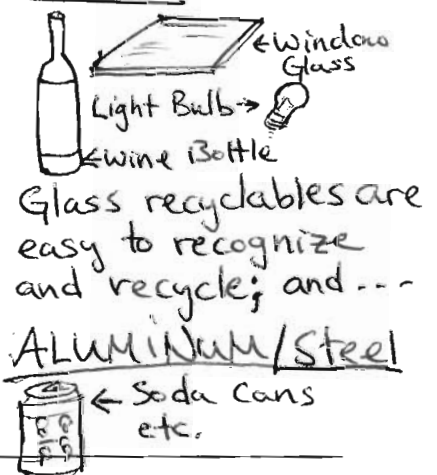 ←Window
Glass
Light Bulb→
←Wine Bottle
Glass recyclables are
easy to recognize
and recycle; and ----
ALUMINUM/Steel
← Soda Cans
etc.